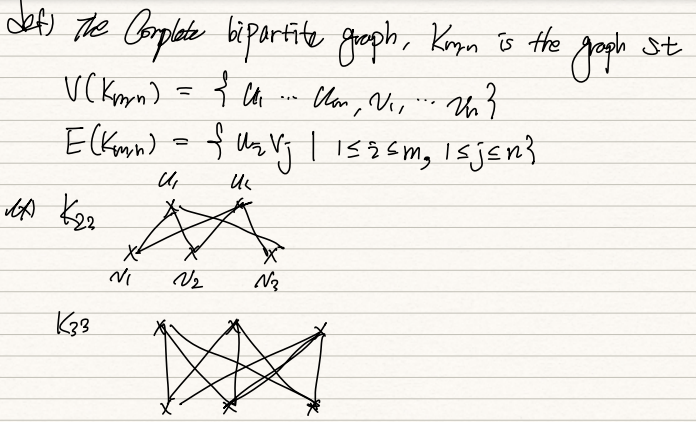 def) The Complete bipartite graph, Km,n is the graph st
V(Km,n) = { u1 ... um, v1, ... vn}
E(Km,n) = { ui vj | 1≤i≤m, 1≤j≤n}
u1 u2
ex) K22
v1 v2 v3
K33